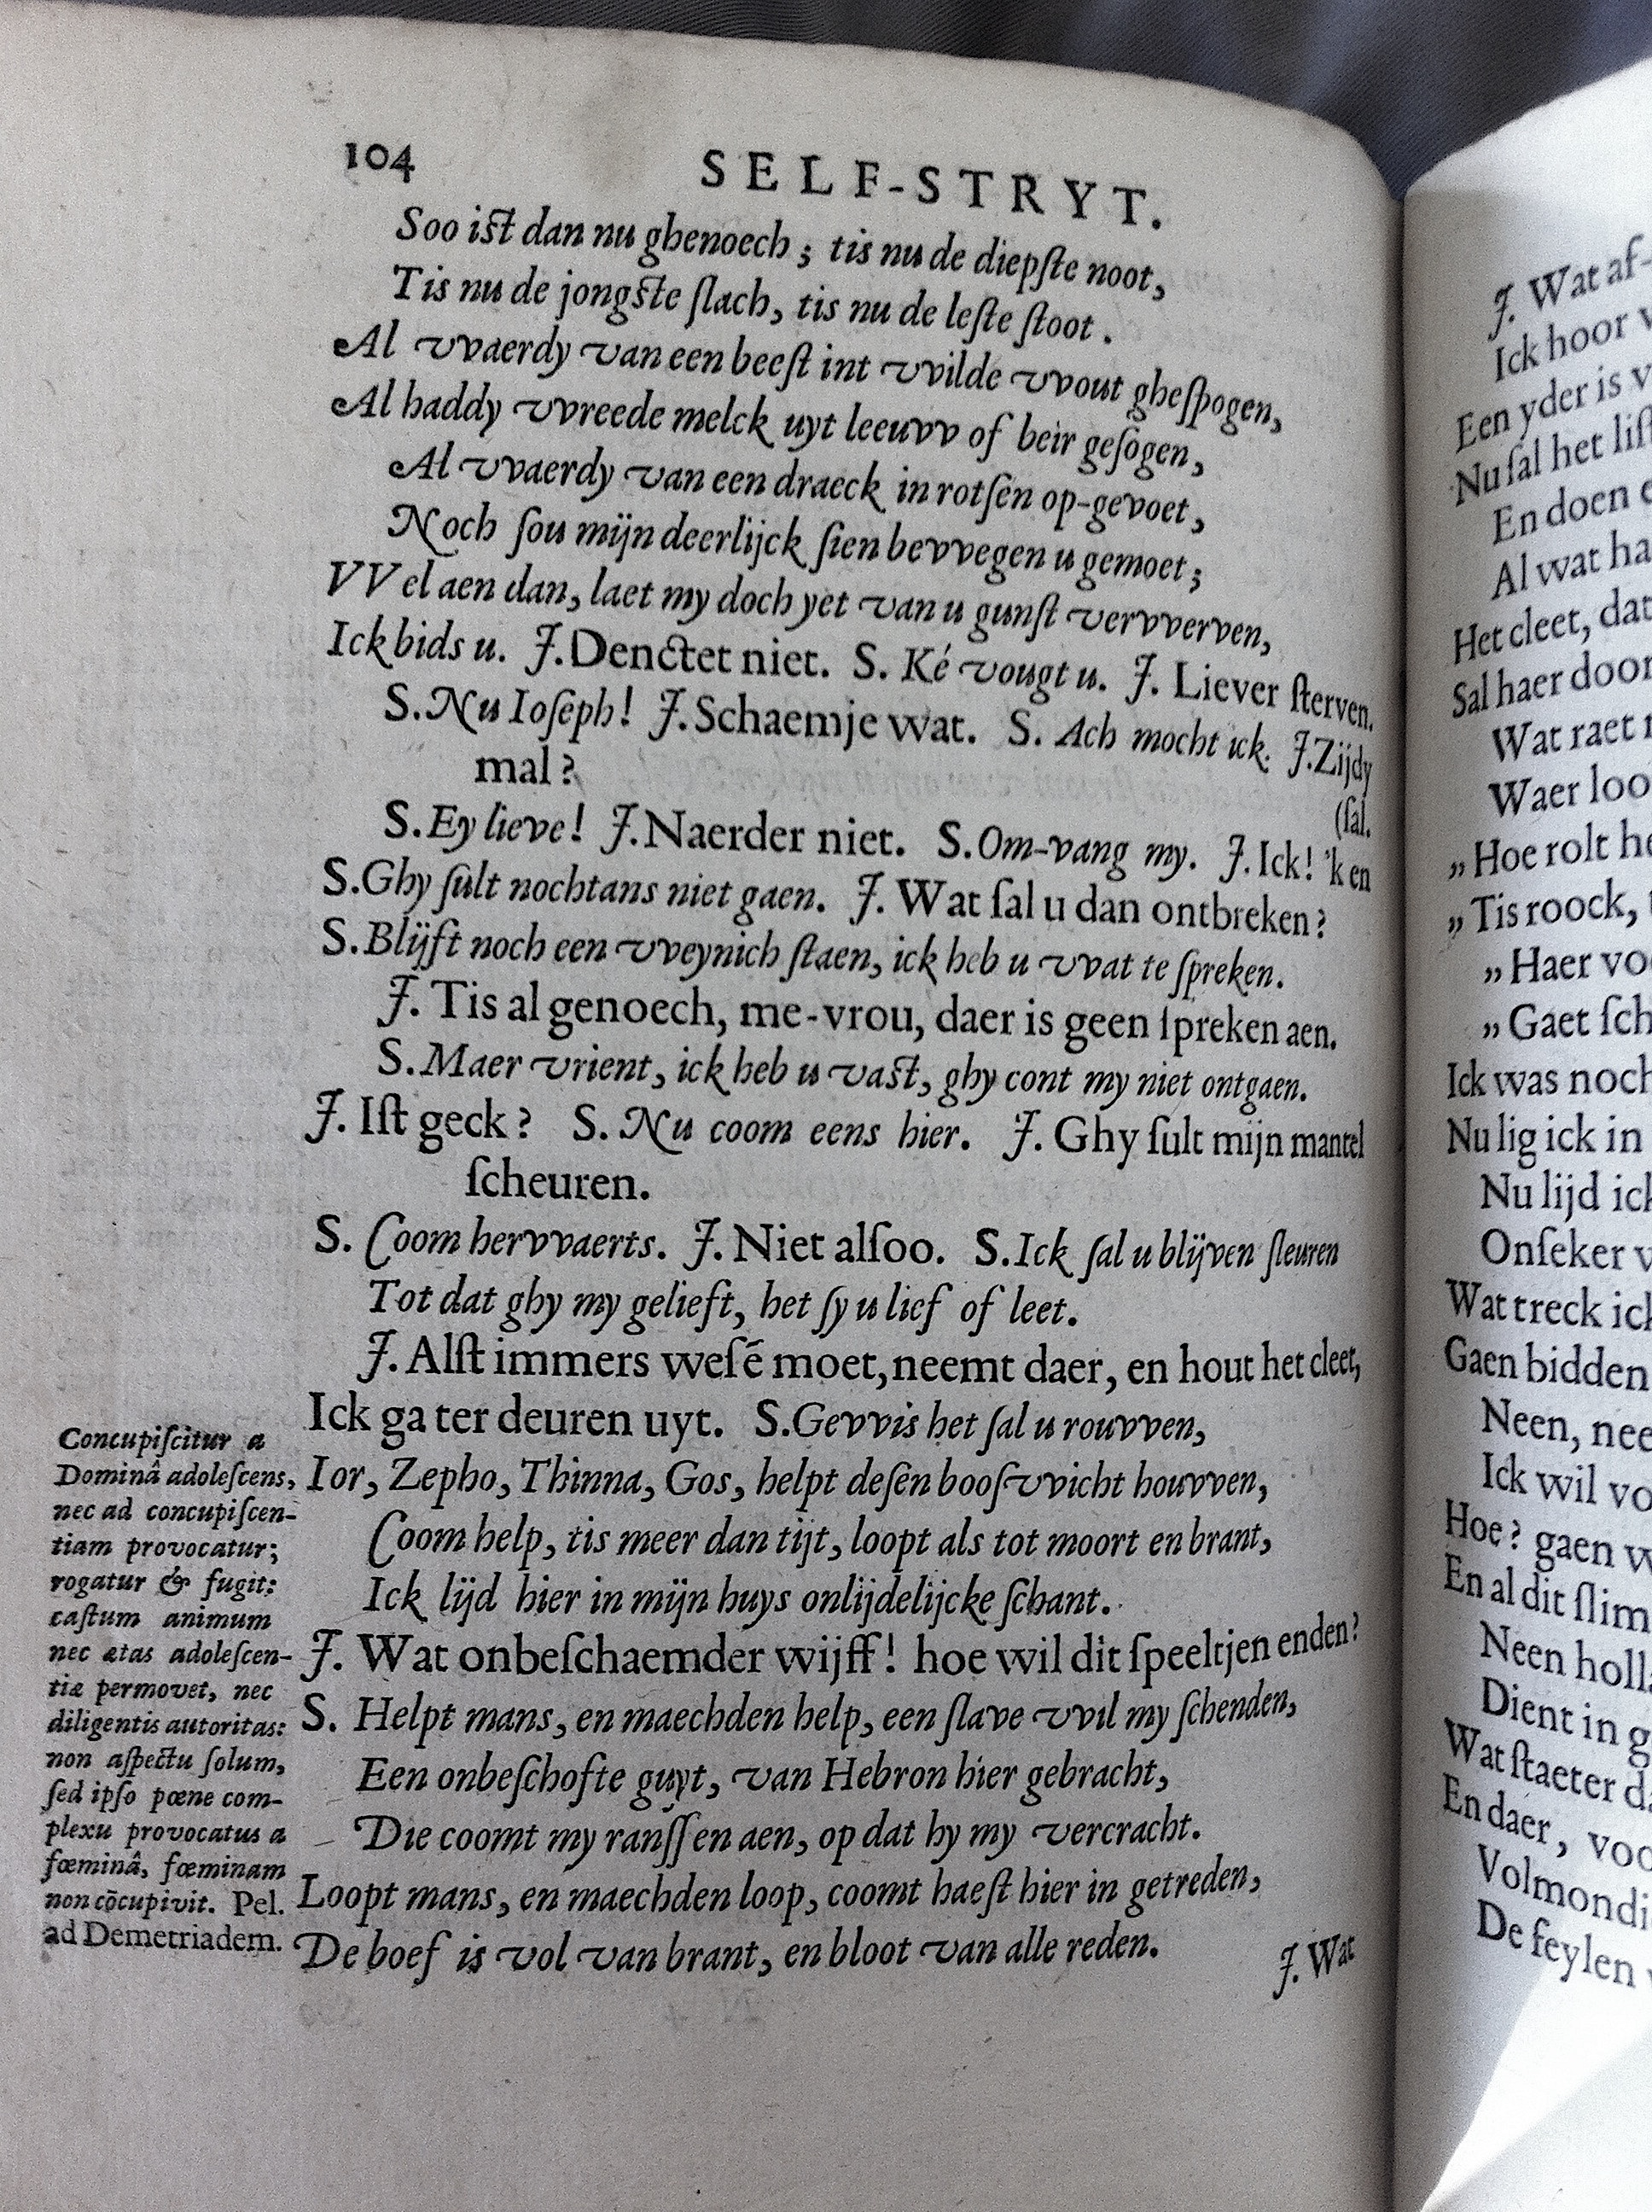 104
SELF-STRYT.
Soo iſt dan nu ghenoech; tis nu de diepſte noot,
Tis nu de jongſte ſlach, tis nu de leſte ſtoot.
Al vvaerdy van een beeſt int vvilde vvout gheſpogen,
Al haddy vvreede melck uyt leeuvv of beir geſogen,
Al vvaerdy van een draeck in rotſen op-gevoet,
Noch ſou mijn deerlijck ſien bevvegen u gemoet;
VVel aen dan, laet my doch yet van u gunſt vervverven,
Ick bids u. J. Denctet niet. S. Ké vougt u. J. Liever ſterven.
S. Nu Ioſeph! J. Schaemje wat. S. Ach mocht ick. J. Zijdy
mal?
(ſal.
S. Ey lieve! J. Naerder niet. S. Om-vang my. J. Ick! 'k en
S. Ghy ſult nochtans niet gaen. J. Wat ſal u dan ontbreken?
S. Blijft noch een vveynich ſtaen, ick heb u vvat te ſpreken.
J. Tis al genoech, me-vrou, daer is geen ſpreken aen.
S. Maer vrient, ick heb u vaſt, ghy cont my niet ontgaen.
J. Iſt geck? S. Nu coom eens hier. J. Ghy ſult mijn mantel
ſcheuren.
S. Coom hervvaerts. J. Niet alſoo. S. Ick ſal u blijven ſleuren
Tot dat ghy my gelieft, het ſy u lief of leet.
J. Alſt immers weſē moet, neemt daer, en hout het cleet,
Ick ga ter deuren uyt. S. Gevvis het ſal u rouvven,
Ior, Zepho, Thinna, Gos, helpt deſen booſvvicht houvven,
Coom help, tis meer dan tijt, loopt als tot moort en brant,
Ick lijd hier in mijn huys onlijdelijcke ſchant.
J. Wat onbeſchaemder wijff! hoe wil dit ſpeeltjen enden?
S. Helpt mans, en maechden help, een ſlave vvil my ſchenden,
Een onbeſchofte guyt, van Hebron hier gebracht,
Die coomt my ranſſen aen, op dat hy my vercracht.
Loopt mans, en maechden loop, coomt haeſt hier in getreden,
De boef is vol van brant, en bloot van alle reden.
J. Wat
Concupiſcitur a
Dominâ adoleſcens,
nec ad concupiſcen-
tiam provocatur;
rogatur & fugit:
caſtum animum
nec ætas adoleſcen-
tiæ permovet, nec
diligentis autoritas:
non aſpectu ſolum,
ſed ipſo pœne com-
plexu provocatus a
fœminâ, fœminam
non cōcupivit. Pel.
ad Demetriadem.
J. Wat af-
Ick hoor
Een yder is
Nu ſal het
En doen
Al wat
Het cleet, dat
Sal haer door
Wat raet
Waer
„Hoe rolt
„Tis roock,
„Haer
„Gaet
Ick was noch
Nu lig ick in
Nu lijd ick
Onſeker
Wat treck ick
Gaen bidden
Neen,
Ick wil
Hoe? gaen
En al dit
Neen
Dient in
Wat ſtaeter
En daer,
De feylen